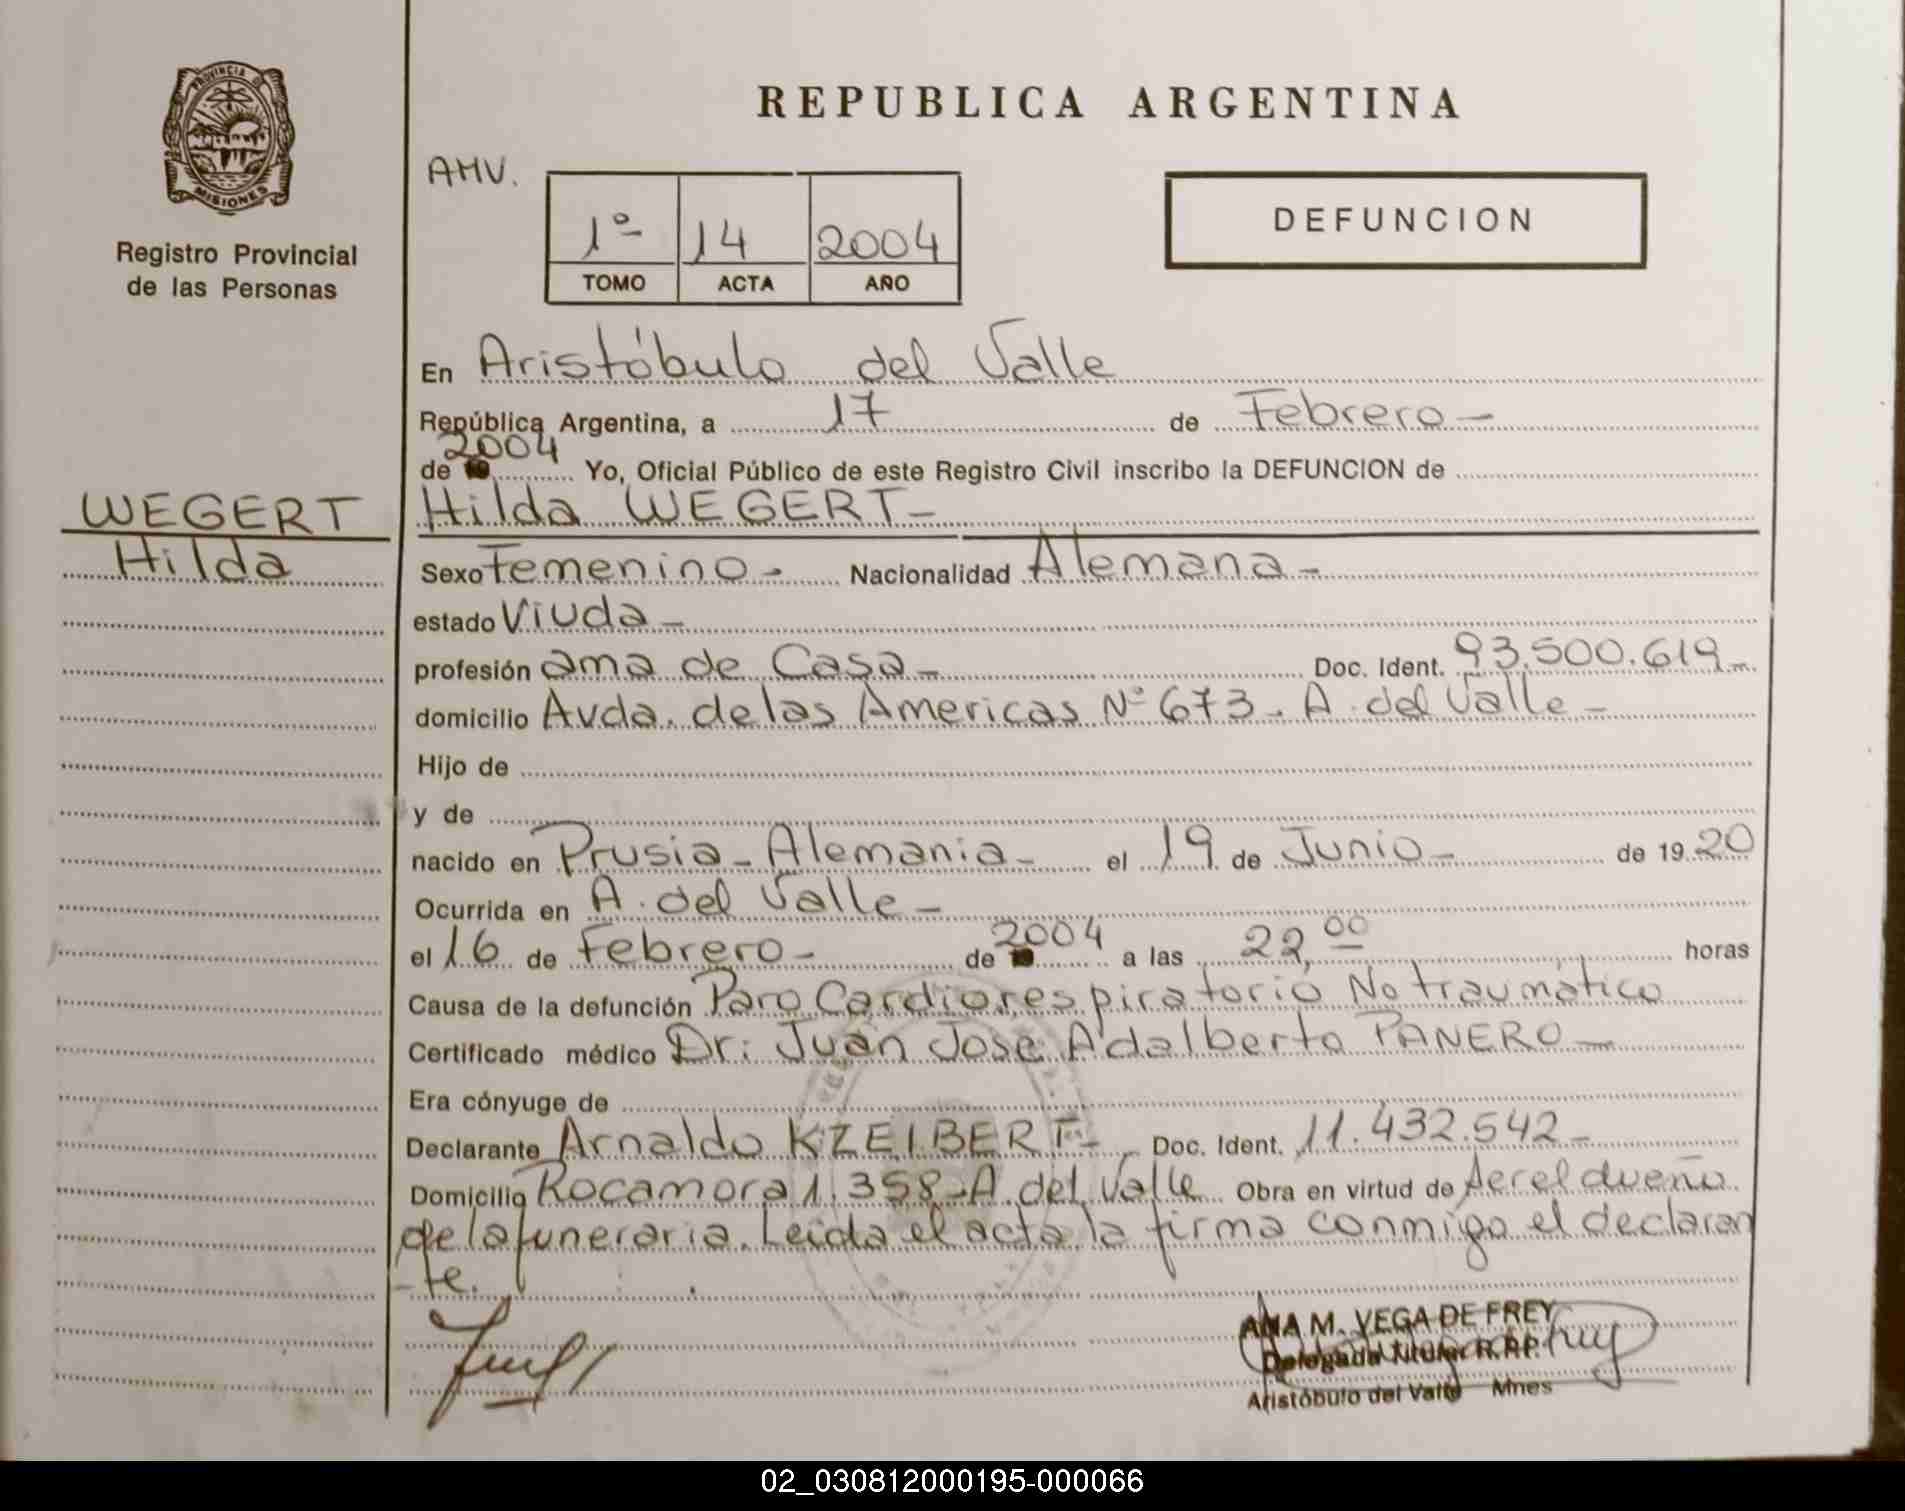 PROVINCIA D
MISIONES
Registro Provincial
de las Personas
REPUBLICA ARGENTINA
AMV.
1º 14 2004
TOMO ACTA AÑO
DEFUNCION
En Aristóbulo del Valle
República Argentina, a 17 de Febrero -
2004
de Yo, Oficial Público de este Registro Civil inscribo la DEFUNCION de
WEGERT
Hilda
Hilda WEGERT -
Sexo Femenino - Nacionalidad Alemana -
estado Viuda -
profesión ama de Casa - Doc. Ident. 93.500.619 -
domicilio Avda. de las Americas Nº 673 - A. del Valle -
Hijo de
y de
nacido en Prusia - Alemania - el 19 de Junio - de 19 20
Ocurrida en A. del Valle -
el 16 de Febrero - de 2004 a las 22,00 horas
Causa de la defunción Paro Cardiorespiratorio No traumático
Certificado médico Dr: Juan José Adalberto PANERO -
Era cónyuge de
Declarante Arnaldo KZEIBERT - Doc. Ident. 11.432.542 -
Domicilio Rocamora 1.358 - A. del Valle Obra en virtud de ser el dueño
de la funeraria. Leida el acta la firma conmigo el declaran
-te.
ANA M. VEGA DE FREY
Delegada Titular R.P.P.
Aristóbulo del Valle Mnes
02_030812000195-000066